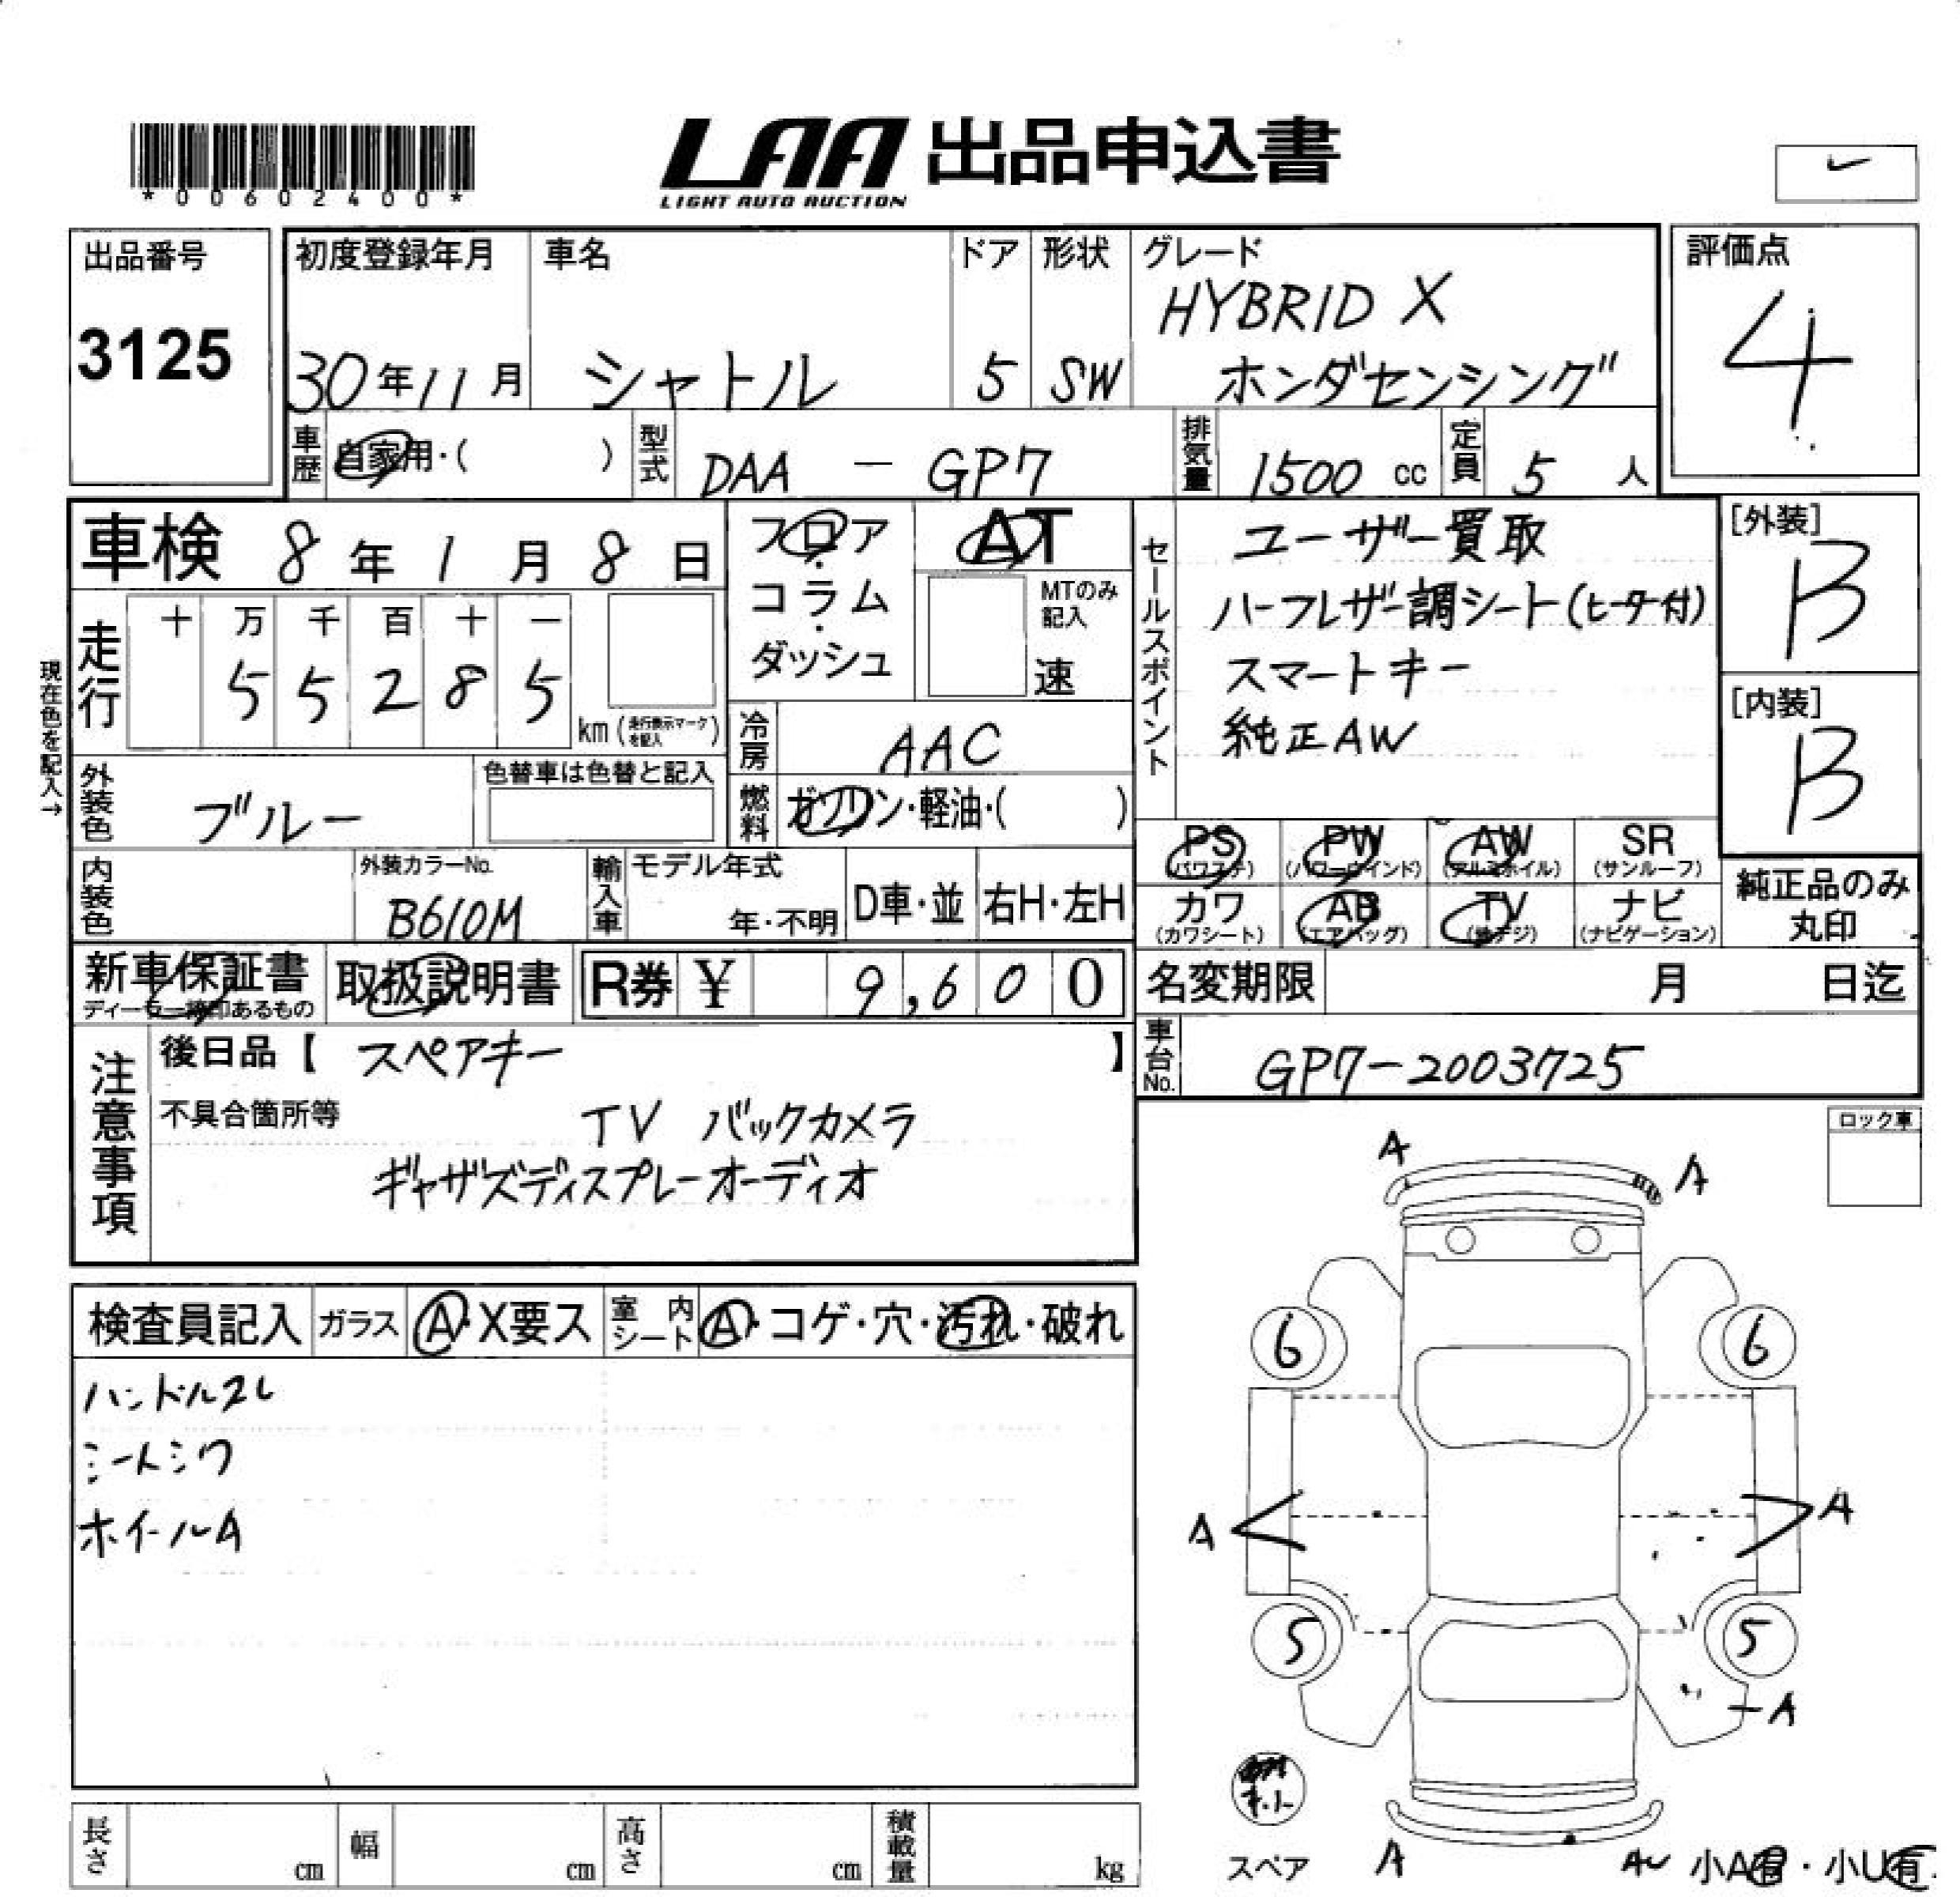 *00602400*
LAA 出品申込書
LIGHT AUTO AUCTION
出品番号
3125
初度登録年月
30年11月
車名
シャトル
ドア
5
形状
SW
グレード
HYBRID X
ホンダセンシング
評価点
4
車歴 自家用・( )
型式 DAA - GP7
排気量 1500 cc
定員 5 人
車検 8年1月8日
走行 十 万 千 百 十 一
5 5 2 8 5
km (走行表示マークを記入)
現在色を記入→
フロア・コラム・ダッシュ
AT
MTのみ記入
速
冷房 AAC
燃料 ガソリン・軽油・( )
セールスポイント
ユーザー買取
ハーフレザー調シート(ヒーター付)
スマートキー
純正AW
[外装]
B
[内装]
B
外装色 ブルー
色替車は色替と記入
内装色
外装カラーNo.
B610M
輸入車
モデル年式
年・不明
D車・並
右H・左H
PS (パワステ)
PW (パワーウインド)
AW (アルミホイル)
SR (サンルーフ)
カワ (カワシート)
AB (エアバッグ)
TV (地デジ)
ナビ (ナビゲーション)
純正品のみ丸印
新車保証書
ディーラー捺印あるもの
取扱説明書
R券 ¥ 9,600
名変期限 月 日迄
車台No. GP7-2003725
注意事項
後日品【 スペアキー 】
不具合箇所等
TV バックカメラ
ギャザズディスプレーオーディオ
ロック車
検査員記入
ガラス A・X要ス
室内シート A・コゲ・穴・汚れ・破れ
ハンドルスレ
シートシワ
ホイールA
A
A
6
6
A
A
5
5
A
スペア
A
AU
小A有・小U有
長さ cm
幅 cm
高さ cm
積載量 kg